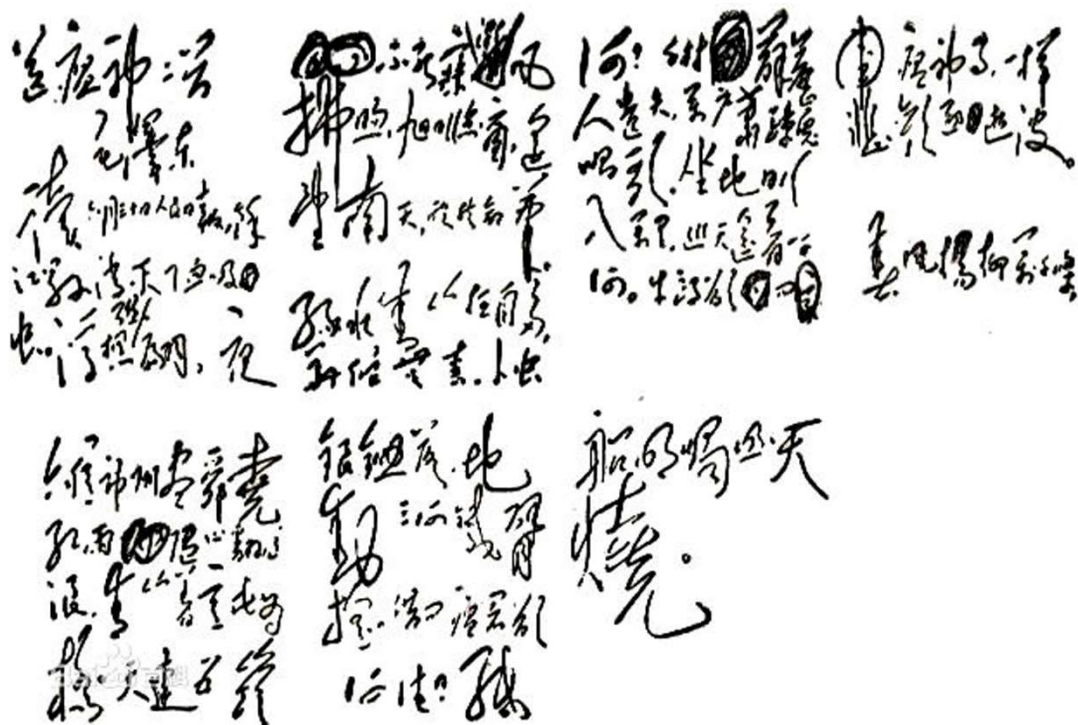 送瘟神二首
毛澤东
读六月三十日人民日报,余
江县消灭了血吸
虫。浮想联翩,夜
不能寐。微风
拂晓,旭日临窗,遥
望南天,欣然命笔。
绿水青山枉自多,
华佗无奈小虫
何!千村薜荔
人遗矢,万户萧疏鬼
唱歌。坐地日行
八万里,巡天遥看一千
河。牛郎欲问
瘟神事,一样
悲欢逐逝波。
春风杨柳万千条
六亿神州尽舜尧
红雨随心翻作
浪,青山着意化为
桥。天连五岭
银锄落,地
动三河铁臂
摇。借问瘟君欲
何往?纸
船明烛照天
烧。
Baidu百科